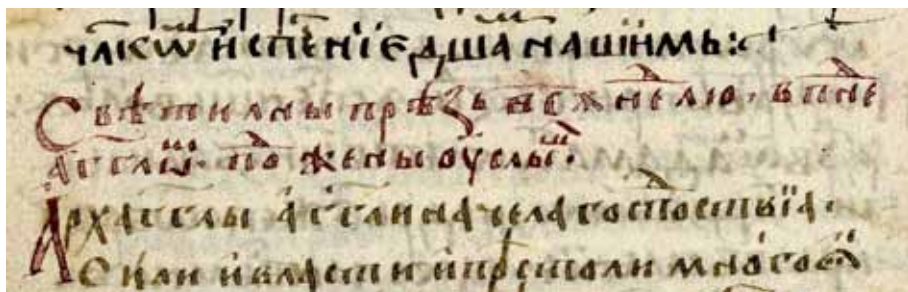 члкѡ и спⷭ҇енїе дш҃а нашїимь:·
Свѣтилны прѣзь всѫ неⷣлю· в пⷩ҇е
агг҃лѡⷨ· поⷣ жены оуслыⷲ·
Архагг҃лы агг҃ли начела госпоⷣстьвїа·
и власти и прѣстоли многоѻ